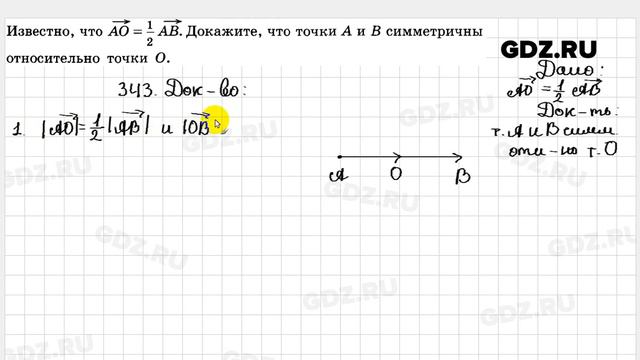 Известно, что AO = 1/2 AB. Докажите, что точки A и B симметричны
относительно точки O.
GDZ.RU
343. Док-во:
Дано:
AO = 1/2 AB
Док-ть:
т. A и B симм.
отн-но т. O
1. |AO| = 1/2 |AB| и |OB
A O B
GDZ.RU
GDZ.RU
GDZ.RU
GDZ.RU
GDZ.RU
GDZ.RU
GDZ.RU
GDZ.RU